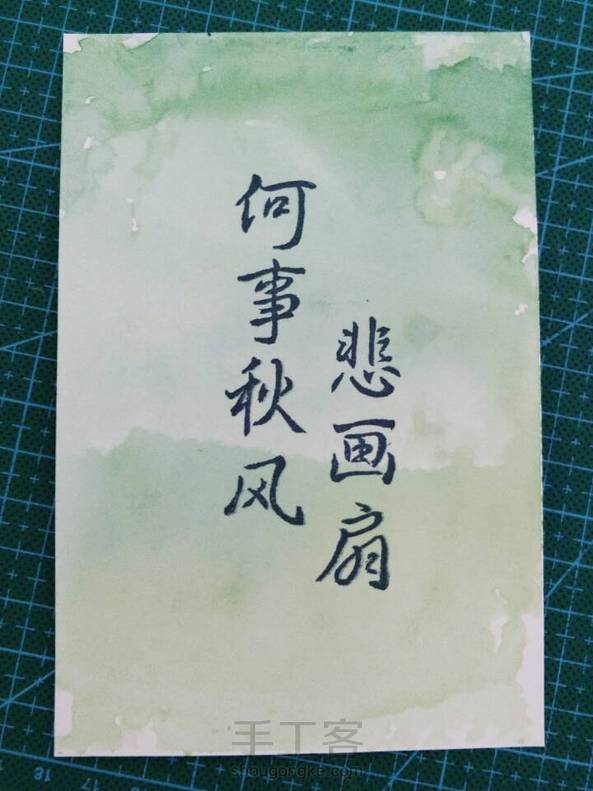 何事秋风
悲画扇
手工客
shougongke.com
18
17